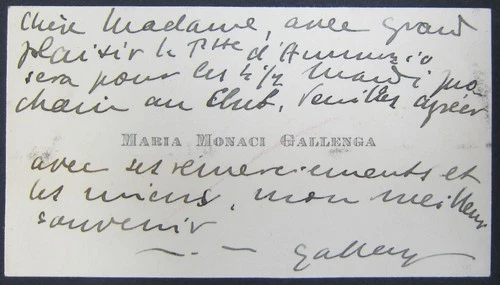 Chère Madame, avec grand
plaisir la Ptte d'Annunzio
sera pour les 4 1/2 Mardi pro
chain au Club. Veuillez agréer
MARIA MONACI GALLENGA
avec ses remerciements et
les miens, mon meilleur
souvenir
Gallenga